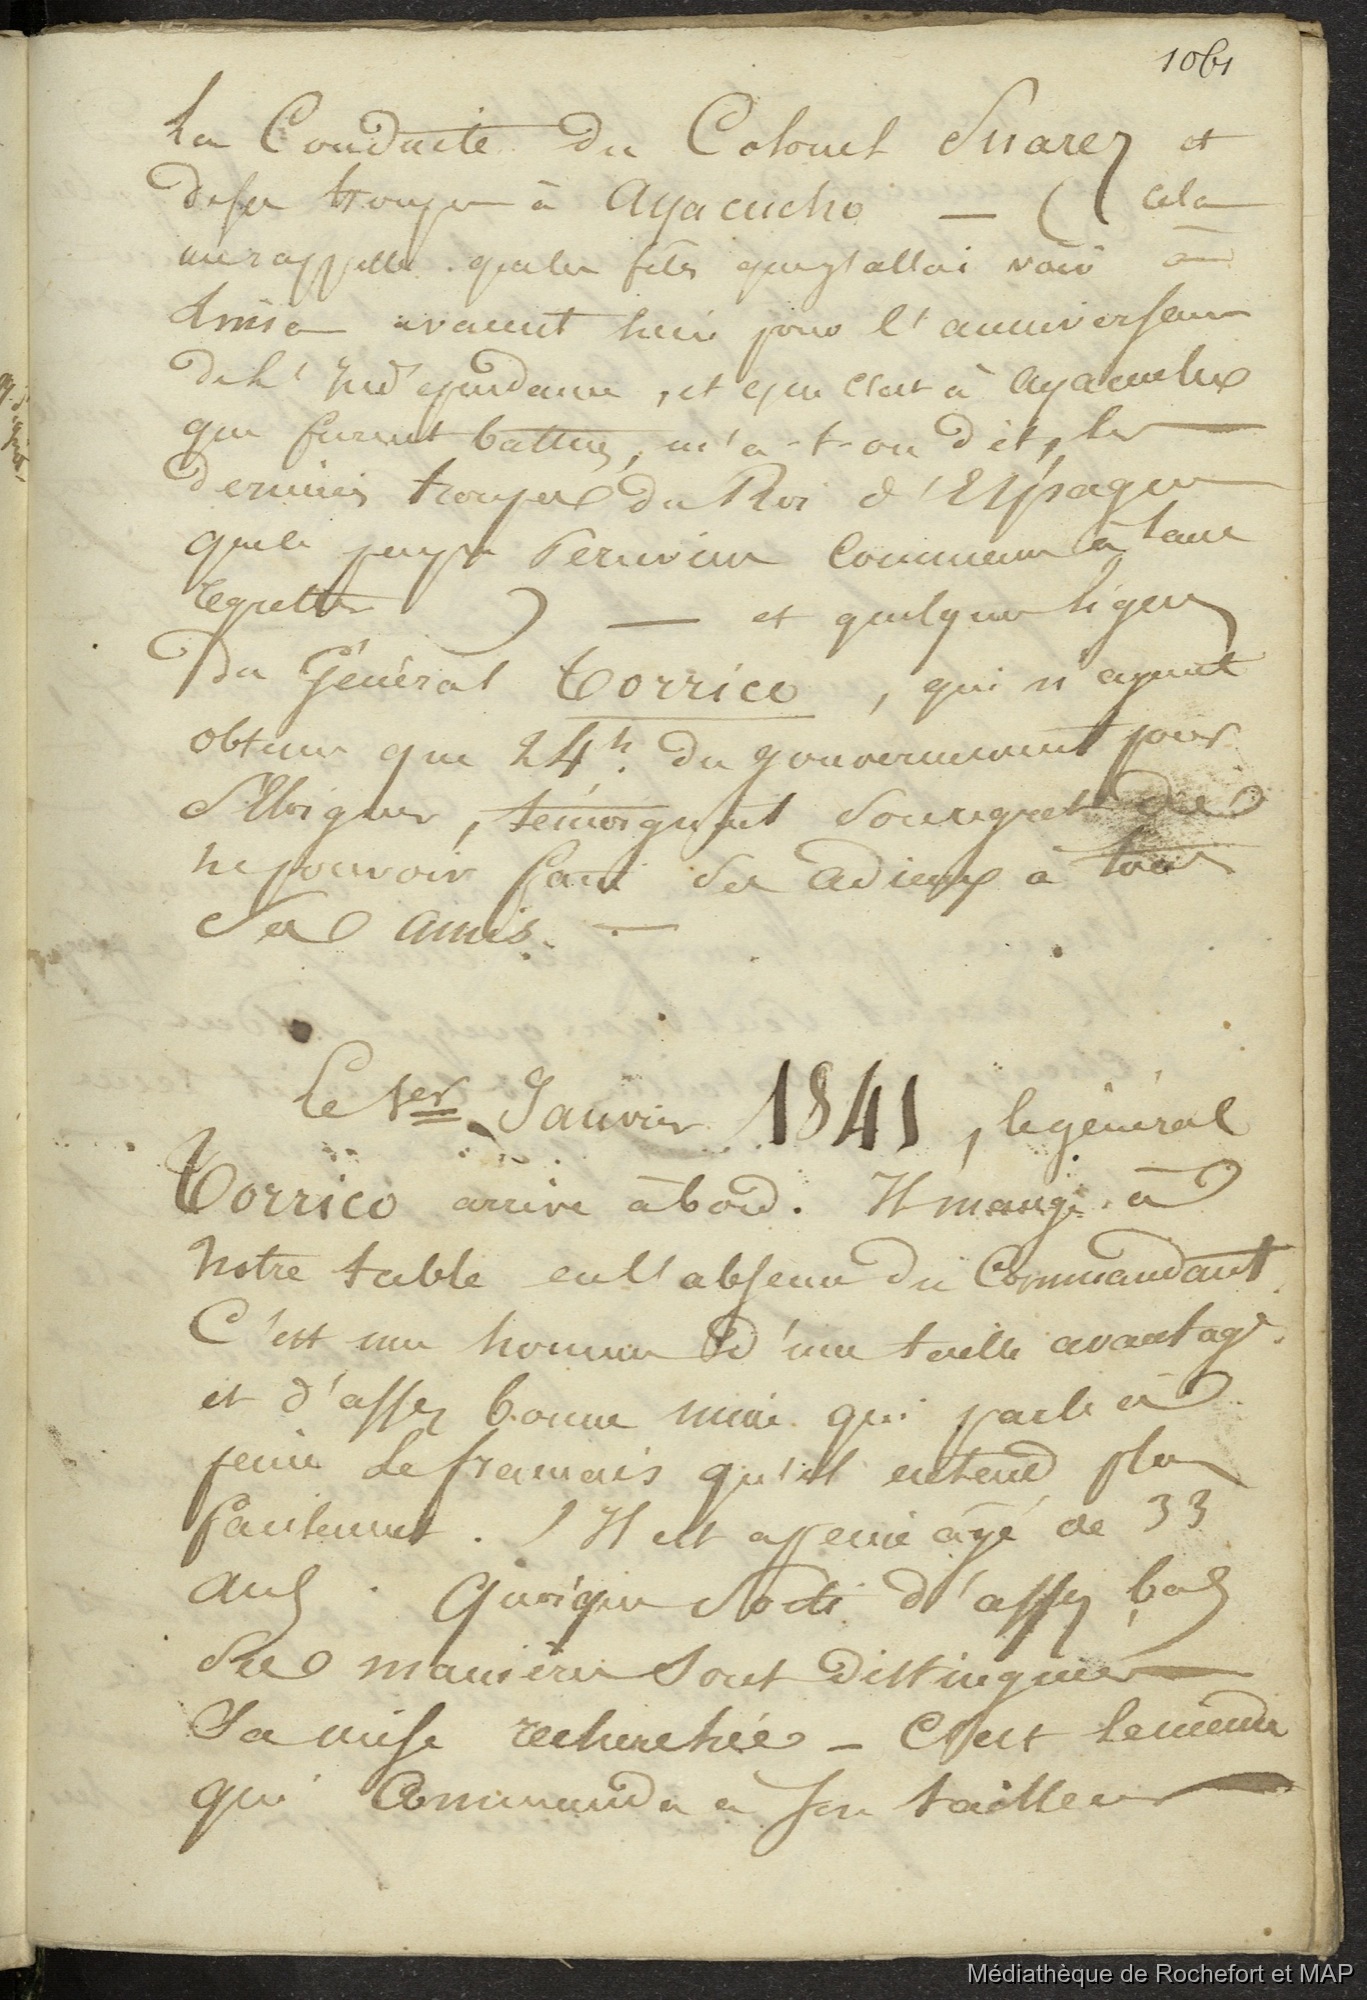 1061
la Conduite du Colonel Suarez et
de ses troupes à Ayacucho — ( cela
me rappelle que les fêtes que j'allai voir à
Lima avaient lieu pour l'anniversaire
de l'Indépendance, et que c'est à Ayacucho
que furent battues, m'a-t-on dit, les
dernières troupes du Roi d'Espagne
que le peuple Péruvien commence à tant
regretter ) — et quelques lignes
du Général Torrico, qui n'ayant
obtenu que 24h. du gouvernement pour
s'éloigner, témoignait son regret de
ne pouvoir faire ses adieux à tous
ses amis. —
Le 1er Janvier 1841, le général
Torrico arrive à bord. Il mange à
notre table en l'absence du Commandant.
C'est un homme d'une taille avantag.
et d'assez bonne mine qui parle à
peine le français qu'il entend plus
facilement. Il est à peine âgé de 33
ans. Quoique sorti d'assez bas
ses manières sont distinguées
Sa mise recherchée — C'est le même
qui commanda à son tailleur
Médiathèque de Rochefort et MAP